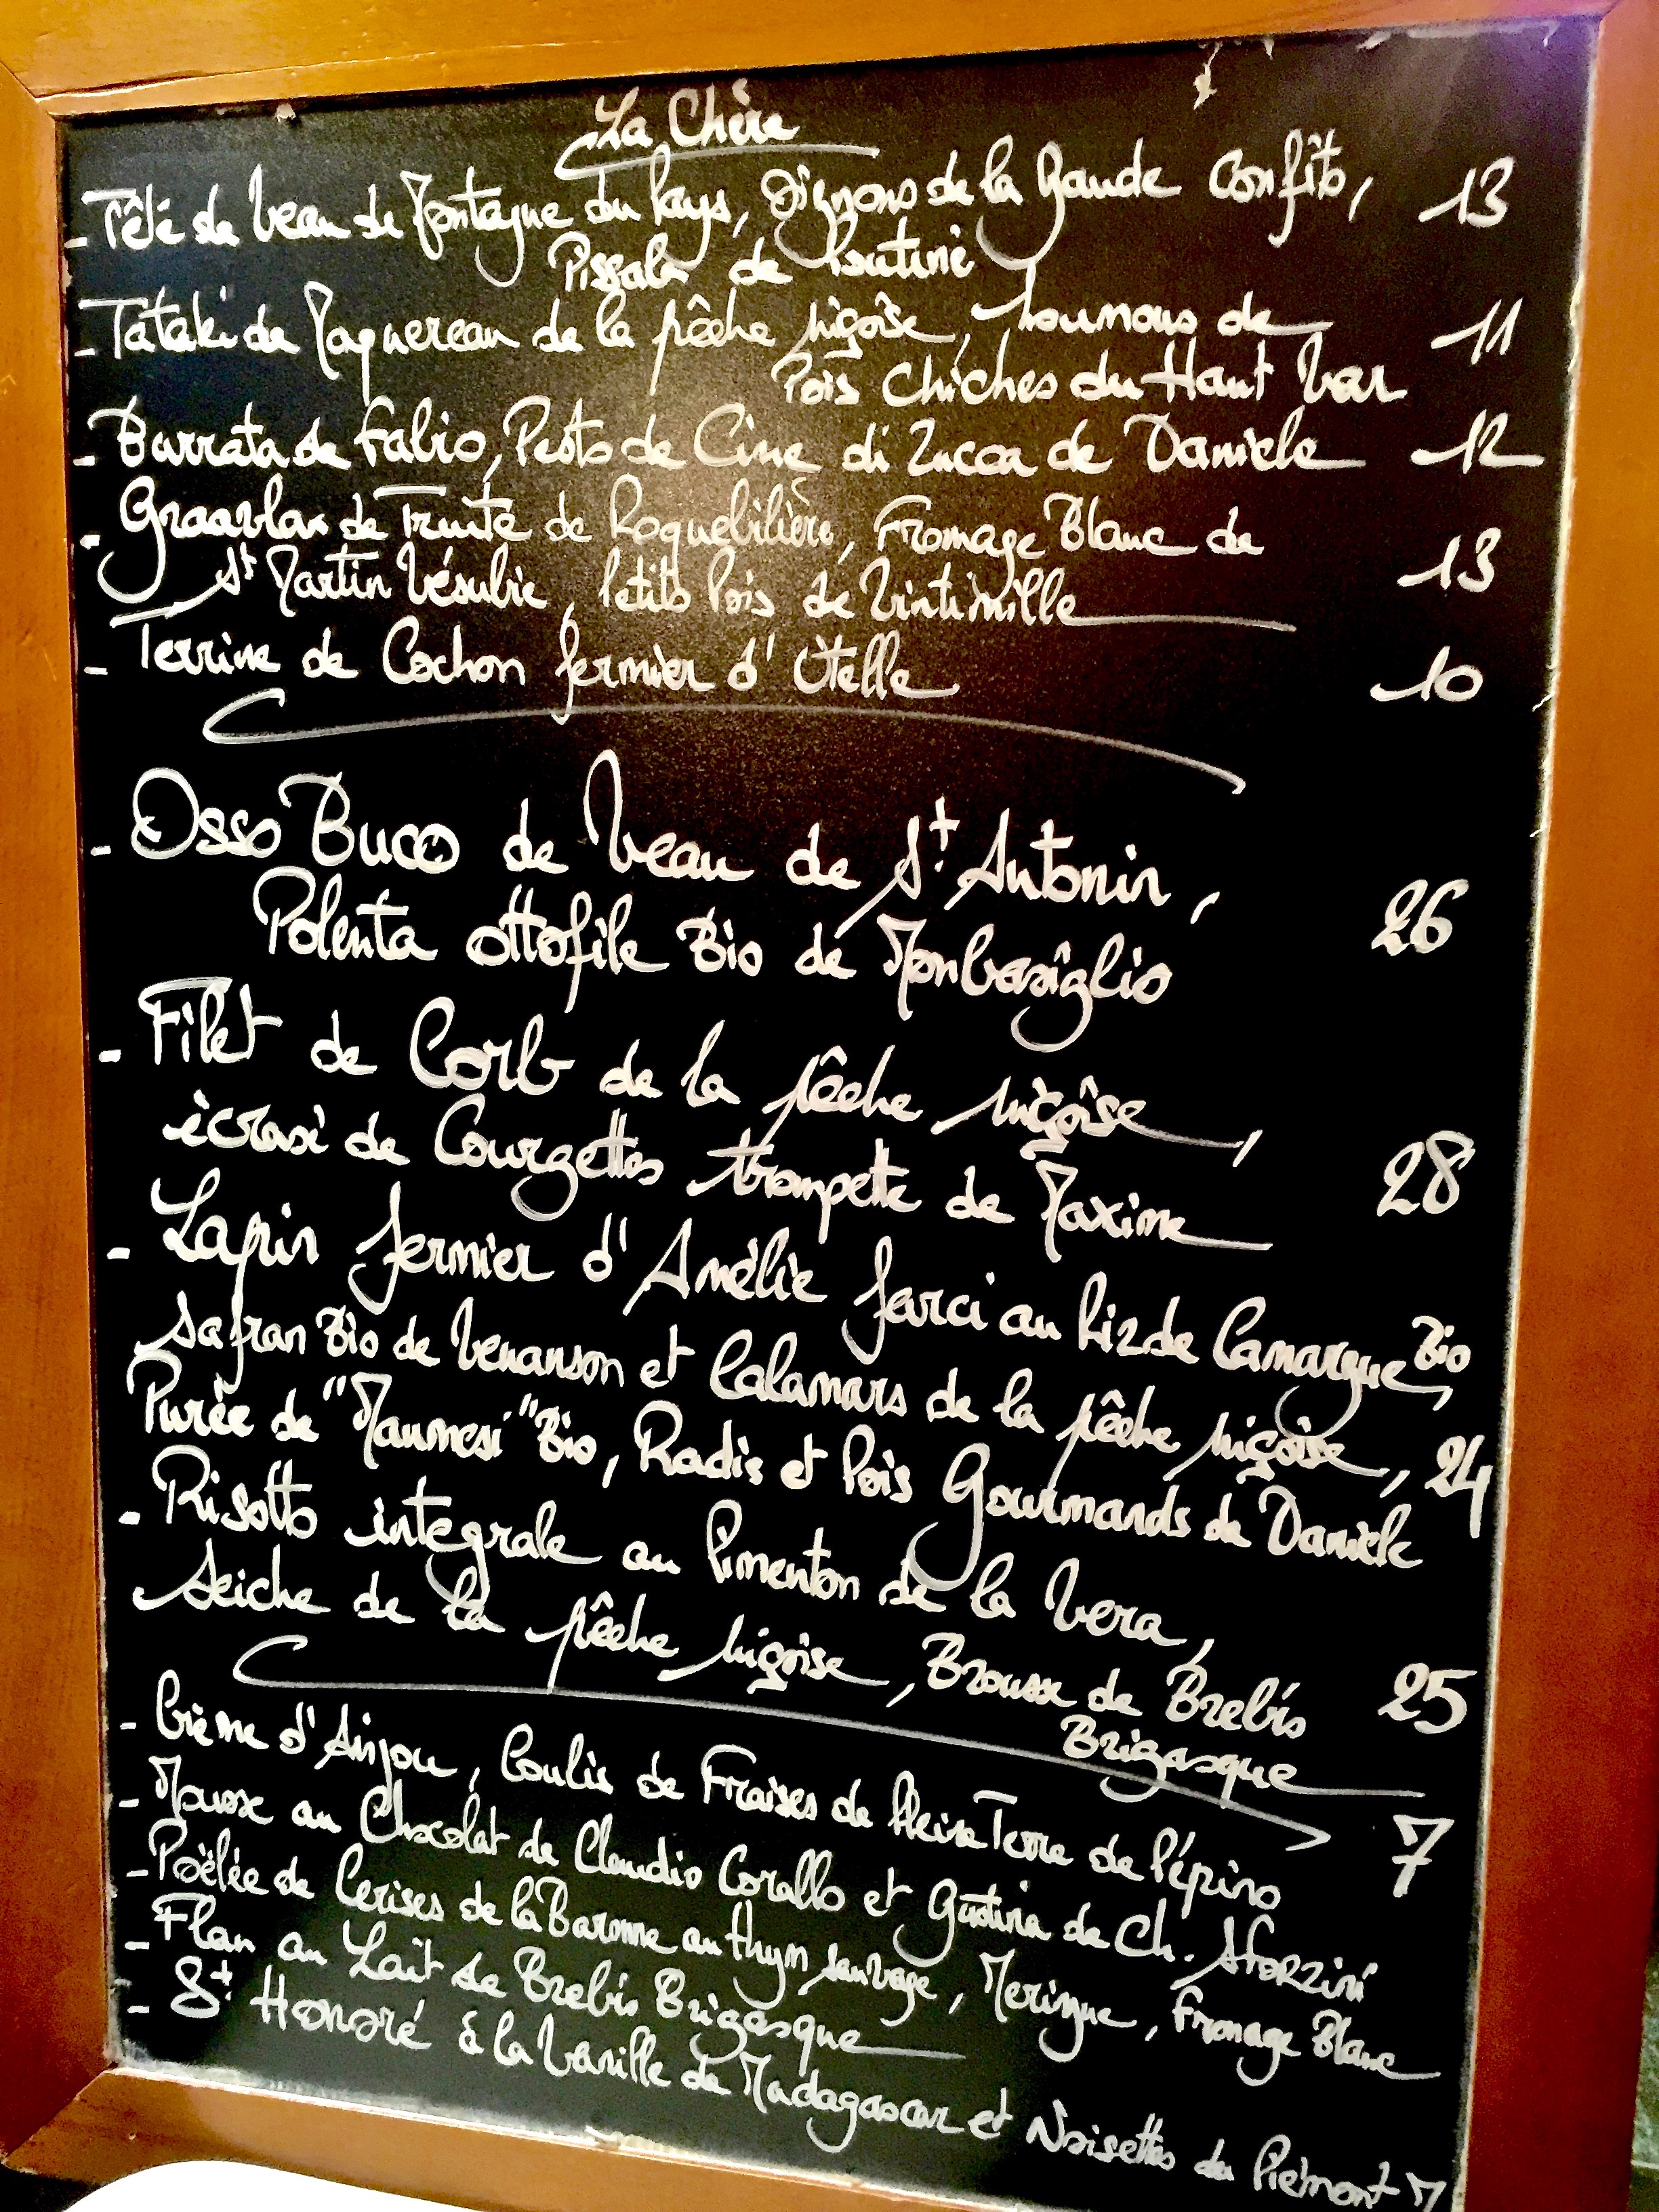 La Chère
- Tête de Veau de Montagne du Pays, Oignons de la Gaude Confits, 13
Pissala de Poutine
- Tataki de Maquereau de la pêche niçoise, houmous de 11
Pois chiches du Haut Var
- Burrata de Fabio, Pesto de Cime di Zucca de Daniele 12
- Graavlax de Truite de Roquebilière, Fromage Blanc de
St Martin Vésubie, Petits Pois de Vintimille 13
- Terrine de Cochon fermier d'Utelle 10
- Osso Buco de Veau de St Antonin,
Polenta ottofile Bio de Monbasiglio 26
- Filet de Corb de la pêche niçoise,
écrasé de Courgettes trompette de Maxime 28
- Lapin fermier d'Amélie farci au Riz de Camargue Bio,
Safran Bio de Venanson et Calamars de la pêche niçoise,
Purée de "Maumesi" Bio, Radis et Pois Gourmands de Daniele 24
- Risotto integrale au Pimenton de la Vera,
Seiche de la pêche niçoise, Brousse de Brebis 25
Brigasque
- Crème d'Anjou, Coulis de Fraises de Pleine Terre de Pépino 7
- Mousse au Chocolat de Claudio Corallo et Gustina de Ch. Sforzini
- Poëlée de Cerises de la Baronne au thym sauvage, Meringue, Fromage Blanc
- Flan au Lait de Brebis Brigasque
- St Honoré à la Vanille de Madagascar et Noisettes du Piémont 7